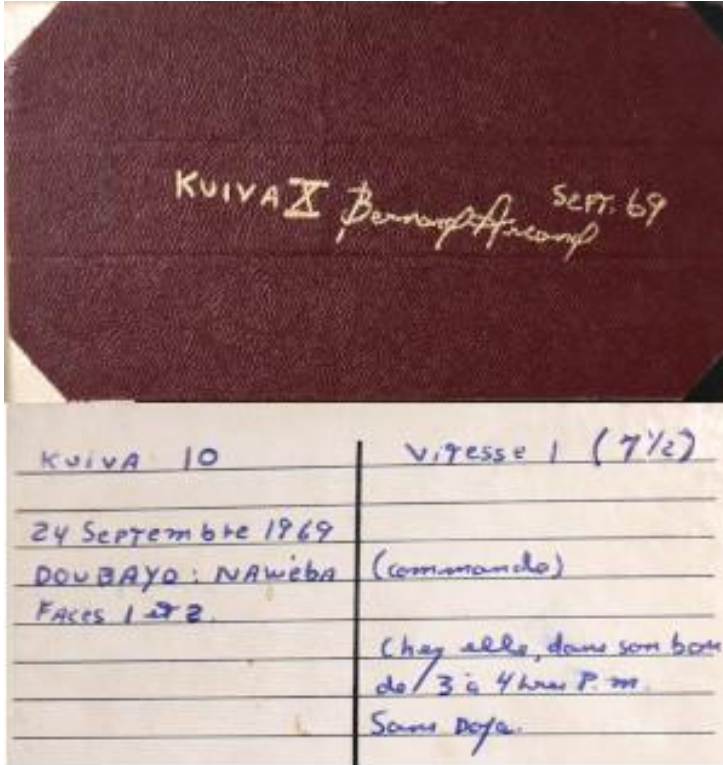 KUIVA X Bernard Arcand SEPT. 69
KUIVA 10
24 Septembre 1969
DOUBAYO : NAWéBA
FACES 1 et 2.
Vitesse 1 (7 1/2)
(commando)
Chez elle, dans son
de 3 à 4 hres P.m.
Sans